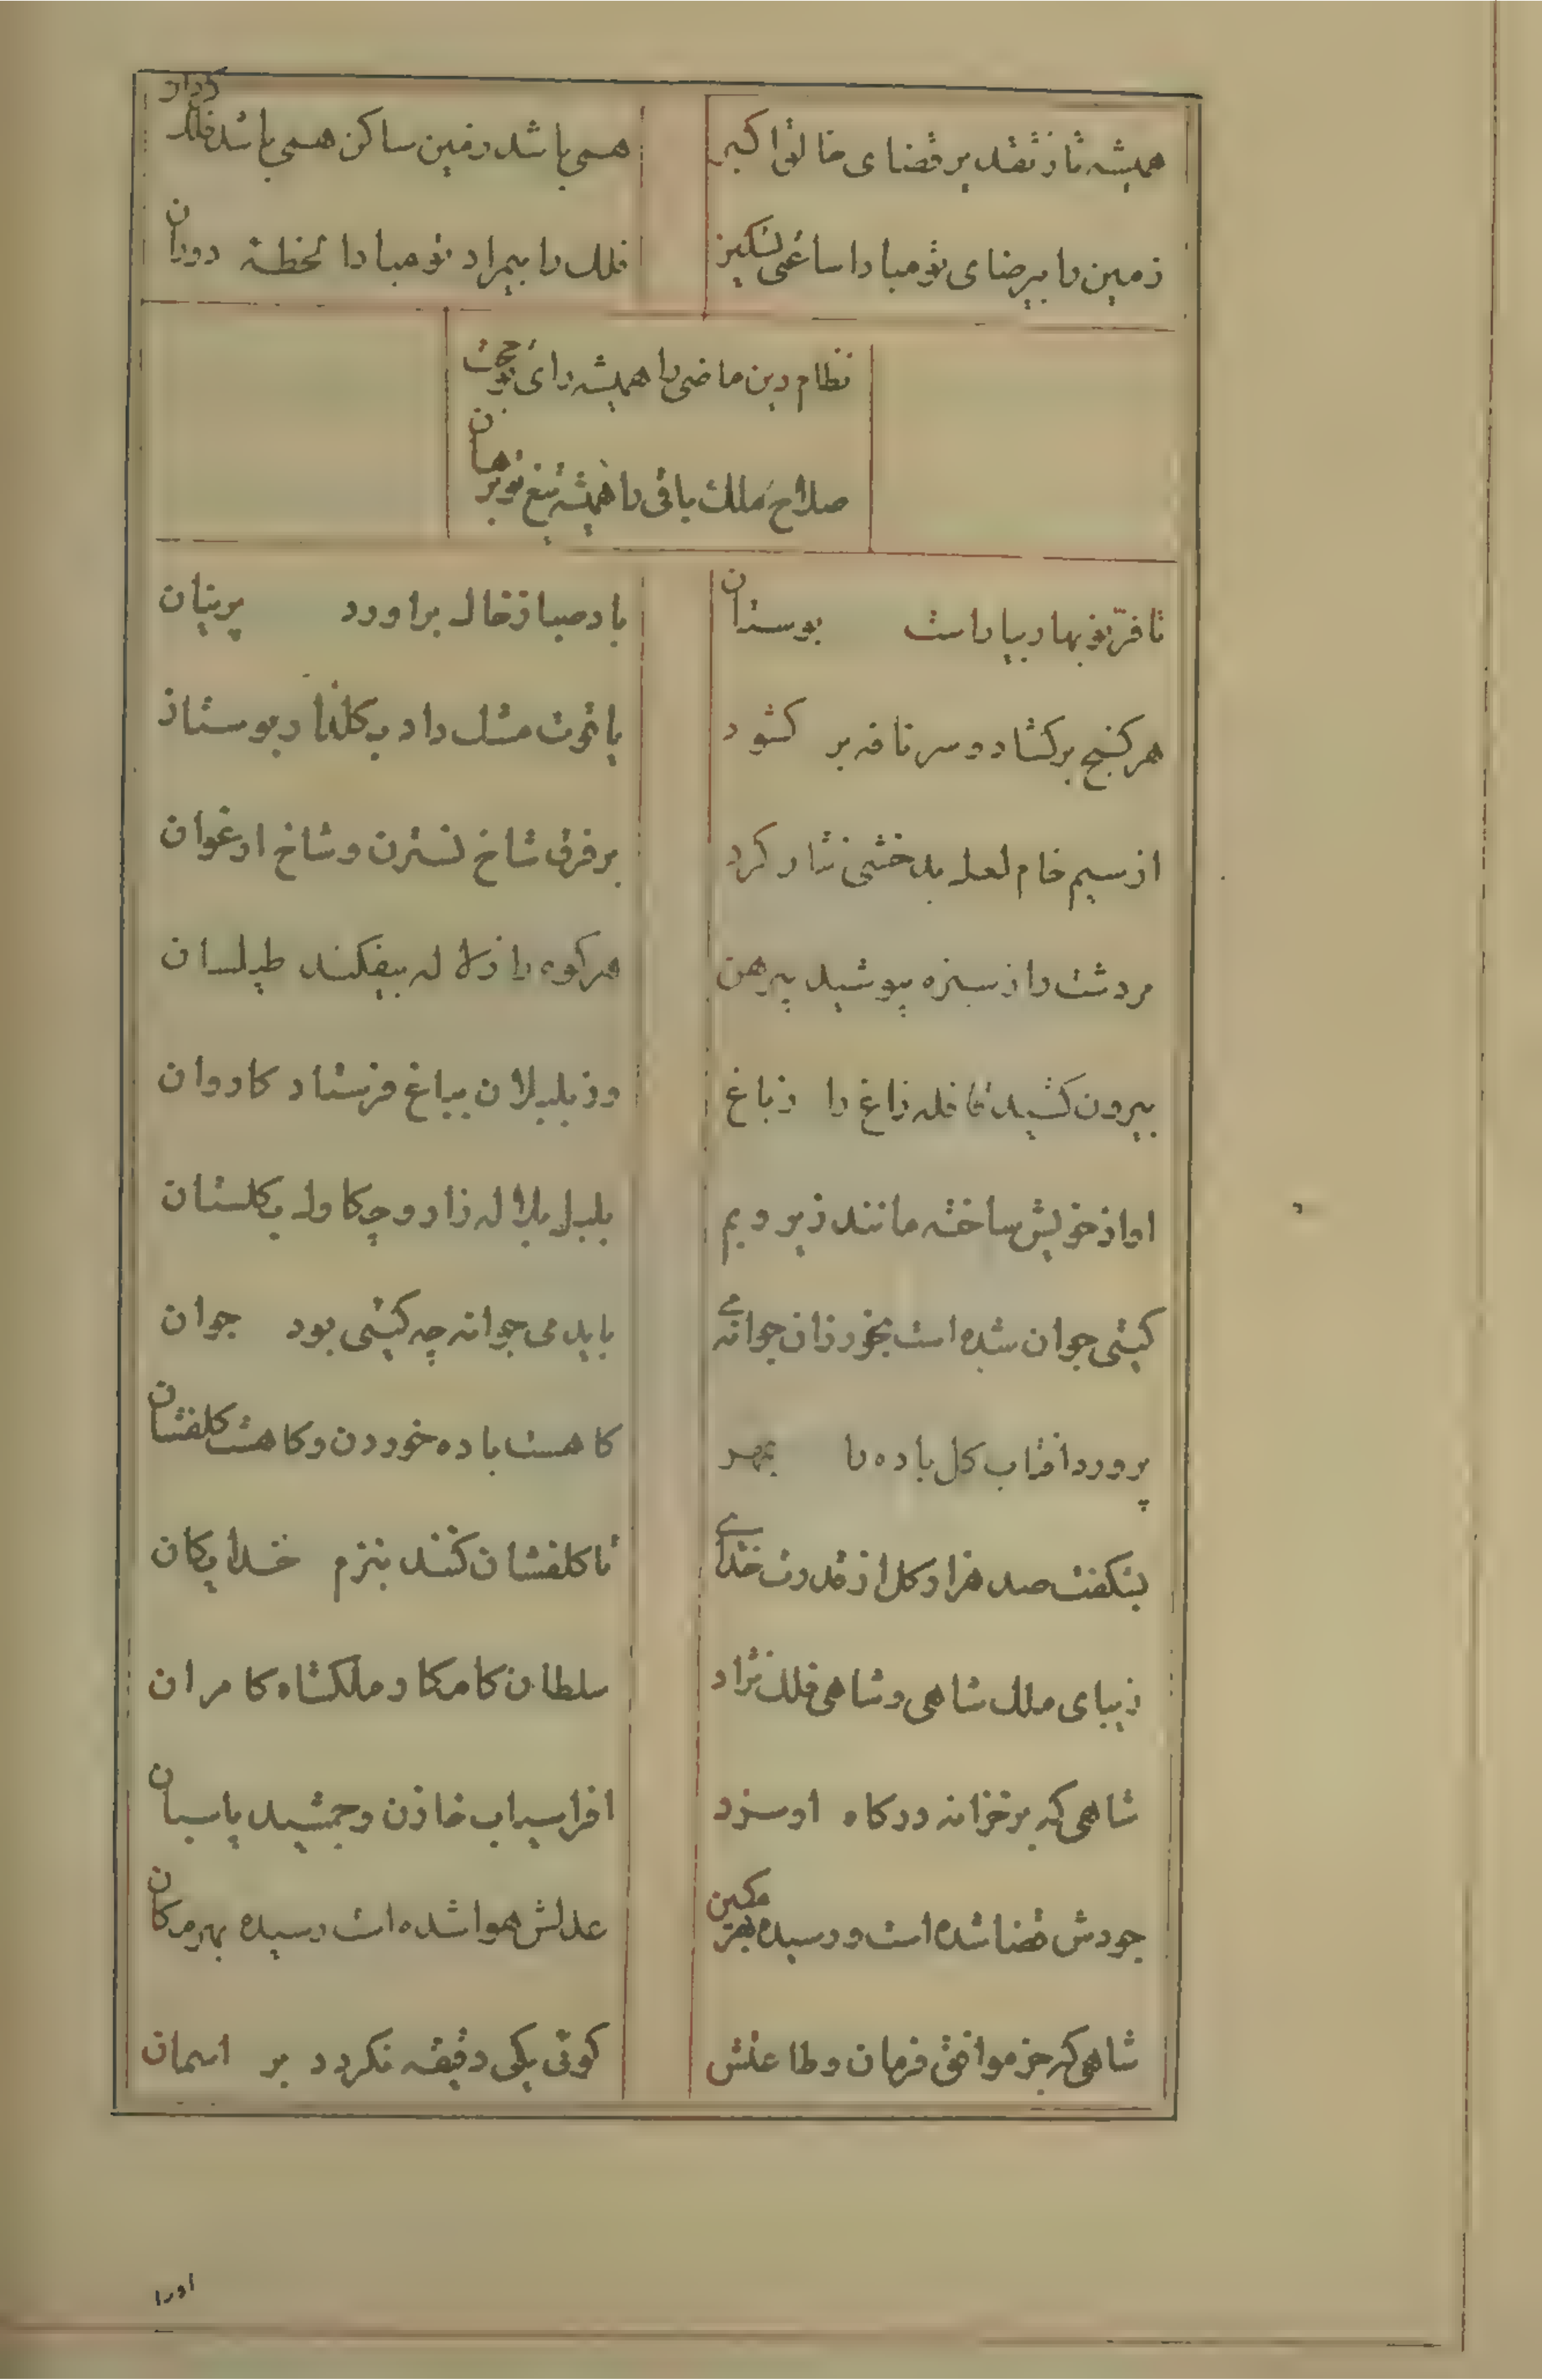 همیشه تا ز تقدیر قضای خالق اکبر
همی باشد زمین ساکن همی باشد فلک گردان
زمین را بیرضای تو مبادا ساعتی تسکین
فلک را بیمراد تو مبادا لحظهٔ دوران
نظام دین ماضی را همیشه رای تو حجت
صلاح ملک باقی را همیشه تیغ تو برهان
تا فرّ نوبهار بیاراست بوستان
باد صبا ز خاک براورد پرنیان
هر کنج برکشاد و سر نافه بر کشود
یاقوت مشک داد بکلنار و بوستان
از سیم خام لعل بدخشی نثار کرد
بر فرق شاخ نسترن و شاخ ارغوان
مر دشت را ز سبزه پوشید پیرهن
مر کوه را ز لاله بیفکند طیلسان
بیرون کشید قافله زاغ را ز باغ
وز بلبلان بباغ فرستاد کاروان
اواز خویش ساخته مانند زیر و بم
بلبل بلاله زار و چکاوک بکلستان
کیتی جوان شده است بخور زان جوانه می
باید می جوانه چه کیتی بود جوان
پرورد افتاب کل باده را بمهر
کاهست باده خوردن و کاهست کلفشان
بشکفت صد هزار کل از قدرت خدای
تا کلفشان کنند ببزم خدایکان
زیبای ملک شاهی و شاهی فلک نژاد
سلطان کامکار و ملکشاه کامران
شاهی که بر خزانه و درکاه او سزد
افراسیاب خازن و جمشید پاسبان
جودش قضا شده است و رسیده بهر مکین
عدلش هوا شده است رسیده بهر مکان
شاهی که جز موافق فرمان و طاعتش
کوئی یکی دقیقه نکردد بر اسمان
اورا